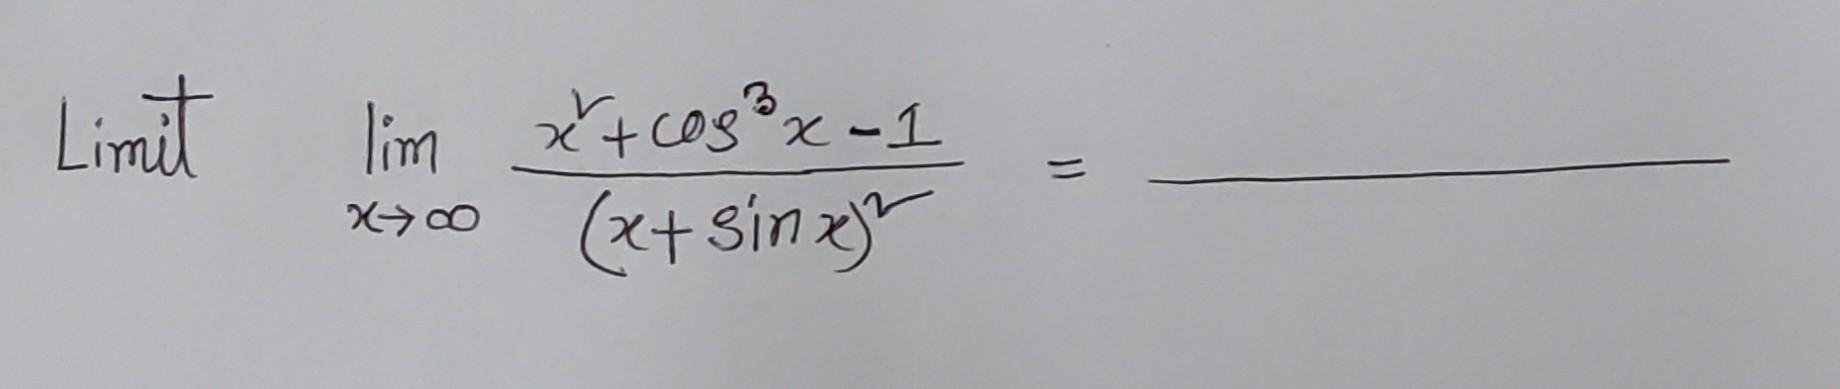 Limit lim x→∞ (x² + cos³x − 1) / (x + sin x)² = ________